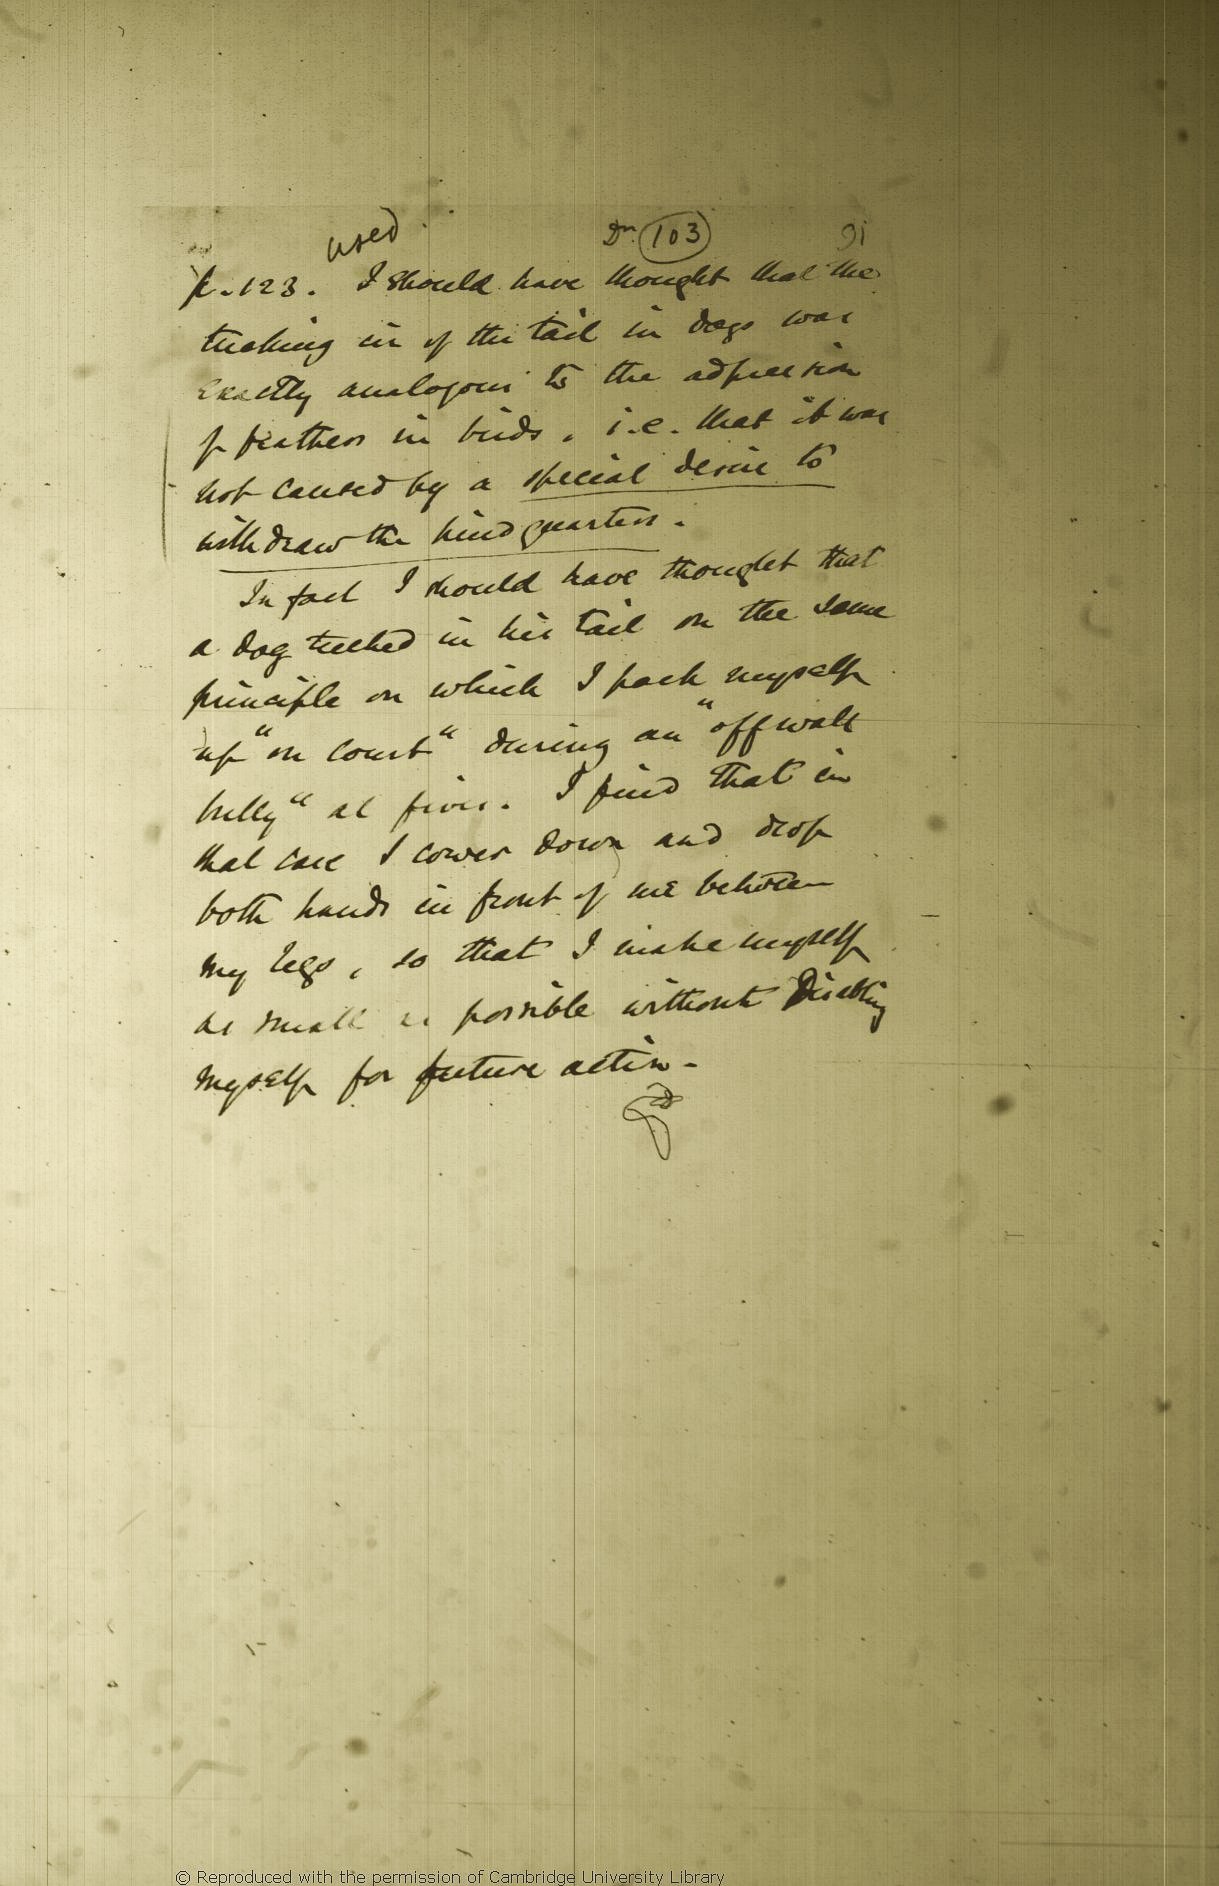 used
Dn 103 91
p. 123. I should have thought that the
tucking in of the tail in dogs was
exactly analogous to the adpression
of feathers in birds, i.e. that it was
not caused by a special desire to
withdraw the hind quarters.
In fact I should have thought that
a dog tucked in his tail on the same
principle on which I pack myself
up "on court" during an "off wall
bully" at fives. I find that in
that case I cower down and drop
both hands in front of me between
my legs, so that I make myself
as small as possible without disabling
myself for future action.
© Reproduced with the permission of Cambridge University Library